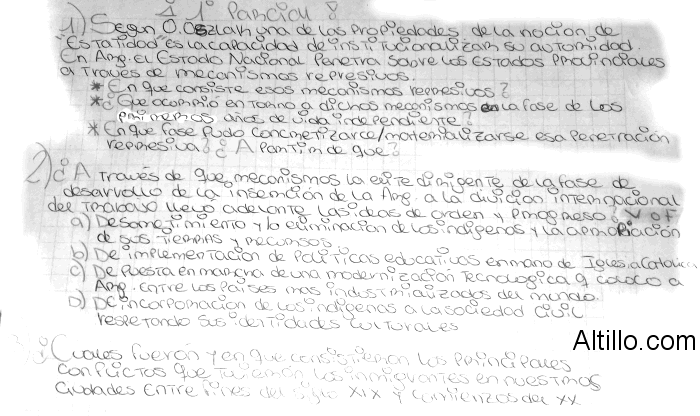 1° Parcial
1) Segun O. Oszlak una de las propiedades de la nocion de
"Estatidad" es la capacidad de institucionalizar su autoridad.
En Arg. el Estado Nacional penetra sobre los Estados Provinciales
a traves de mecanismos represivos.
* En que consiste esos mecanismos represivos?
* ¿Que ocurrio en torno a dichos mecanismos en la fase de los
primeros años de vida independiente?
* En que fase pudo concretizarce/materializarse esa penetración
represiva? ¿A partir de que?
2) ¿A traves de que mecanismos la elite dirigente de la fase de
desarrollo de la inserción de la Arg. a la division internacional
del trabajo llevo adelante las ideas de orden y progreso? V o F
a) De sometimiento y/o eliminacion de los indigenas y la apropiación
de sus tierras y recursos.
b) De implementacion de politicas educativas en mano de Iglesia Catolica
c) De puesta en marcha de una modernización tecnologica q coloco a
Arg. entre los paises mas industrializados del mundo.
d) De incorporacion de los indigenas a la sociedad civil
respetando sus identidades culturales
3) ¿Cuales fueron y en que consistieron los principales
conflictos que tuvieron los inmigrantes en nuestras
ciudades entre fines del siglo XIX y comienzos del XX
Altillo.com